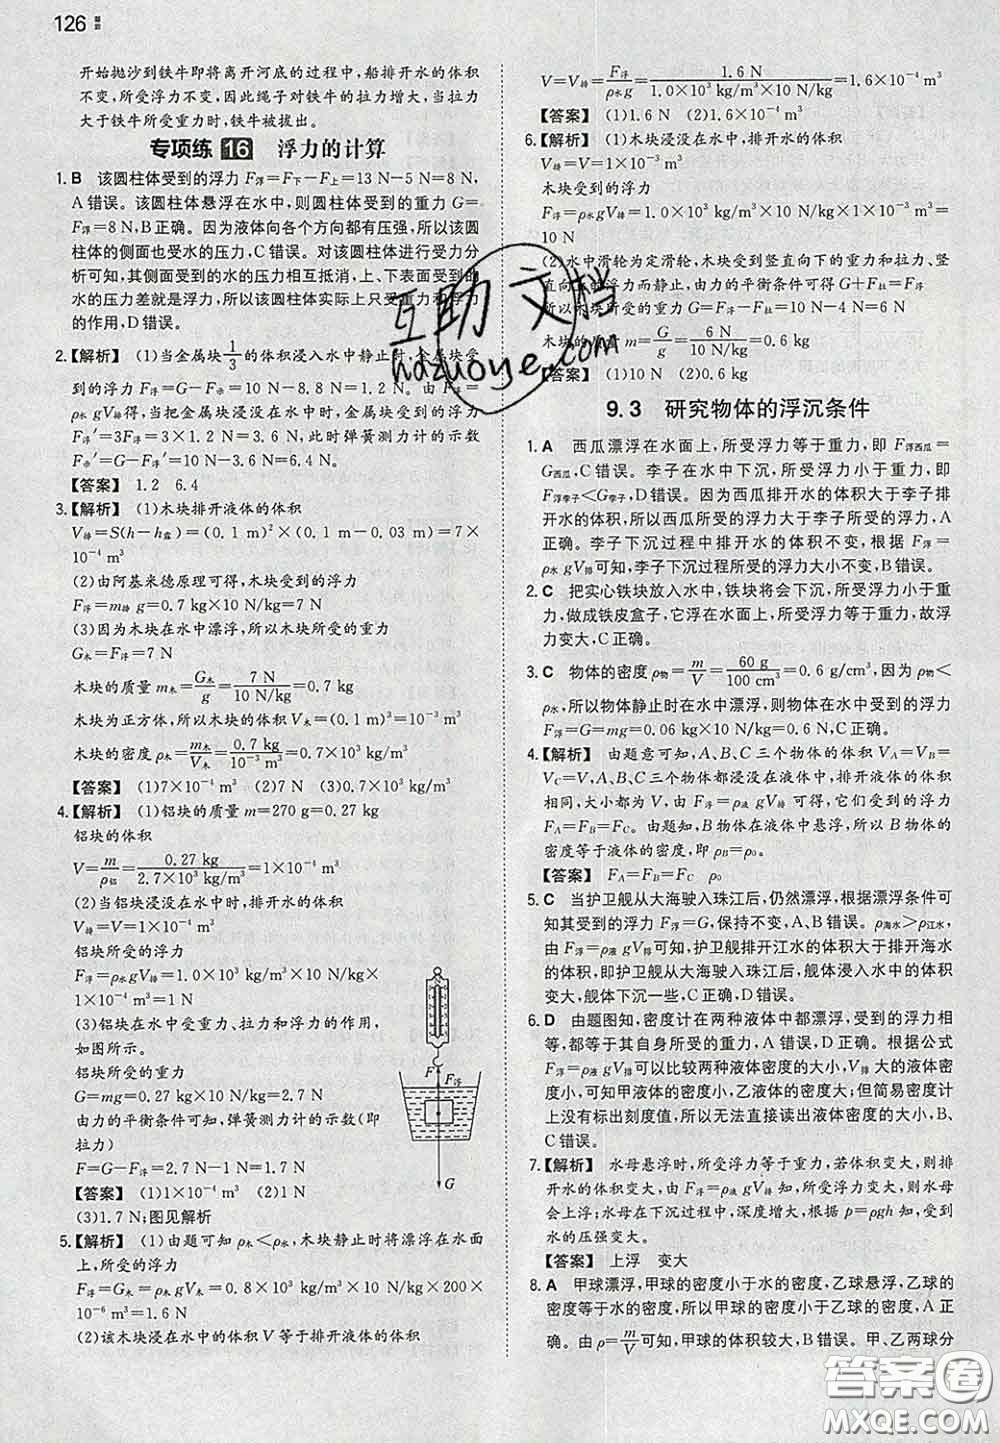 126
开始抛沙到铁牛即将离开河底的过程中,船排开水的体积
不变,所受浮力不变,因此绳子对铁牛的拉力增大,当拉力
大于铁牛所受重力时,铁牛被拔出。
专项练 16 浮力的计算
1. B 该圆柱体受到的浮力 F浮=F下-F上=13 N-5 N=8 N,
A错误。该圆柱体悬浮在水中,则圆柱体受到的重力 G=
F浮=8 N,B正确。因为液体向各个方向都有压强,所以该圆
柱体的侧面也受水的压力,C错误。对该圆柱体进行受力分
析可知,其侧面受到的水的压力相互抵消,上、下表面受到水
的压力差就是浮力,所以该圆柱体实际上只受重力和浮力
的作用,D错误。
2.【解析】 (1)当金属块1/3的体积浸入水中静止时,金属块受
到的浮力 F浮=G-F示=10 N-8.8 N=1.2 N。由 F浮=
ρ液gV排得,当把金属块浸没在水中时,金属块受到的浮力
F浮′=3F浮=3×1.2 N=3.6 N,此时弹簧测力计的示数
F示′=G-F浮′=10 N-3.6 N=6.4 N。
【答案】 1.2 6.4
3.【解析】 (1)木块排开液体的体积
V排=S(h-h露)=(0.1 m)²×(0.1 m-0.03 m)=7×
10⁻⁴ m³
(2)由阿基米德原理可得,木块受到的浮力
F浮=m排g=0.7 kg×10 N/kg=7 N
(3)因为木块在水中漂浮,所以木块所受的重力
G木=F浮=7 N
木块的质量 m木=G木/g=7 N/10 N/kg=0.7 kg
木块为正方体,所以木块的体积 V木=(0.1 m)³=10⁻³ m³
木块的密度 ρ木=m木/V木=0.7 kg/10⁻³ m³=0.7×10³ kg/m³
【答案】 (1)7×10⁻⁴ m³ (2)7 N (3)0.7×10³ kg/m³
4.【解析】 (1)铝块的质量 m=270 g=0.27 kg
铝块的体积
V=m/ρ铝=0.27 kg/2.7×10³ kg/m³=1×10⁻⁴ m³
(2)当铝块浸没在水中时,排开水的体积
V排=V=1×10⁻⁴ m³
铝块所受的浮力
F浮=ρ水gV排=1.0×10³ kg/m³×10 N/kg×
1×10⁻⁴ m³=1 N
(3)铝块在水中受重力、拉力和浮力的作用,
如图所示。
铝块所受的重力
G=mg=0.27 kg×10 N/kg=2.7 N
由力的平衡条件可知,弹簧测力计的示数(即
拉力)
F=G-F浮=2.7 N-1 N=1.7 N
【答案】 (1)1×10⁻⁴ m³ (2)1 N
(3)1.7 N;图见解析
F
F浮
G
5.【解析】 (1)由题可知 ρ木<ρ水,木块静止时将漂浮在水面
上,所受的浮力
F浮=G木=ρ木gV木=0.8×10³ kg/m³×10 N/kg×200×
10⁻⁶ m³=1.6 N
(2)该木块浸在水中的体积 V 等于排开液体的体积
V=V排=F浮/ρ水g=1.6 N/1.0×10³ kg/m³×10 N/kg=1.6×10⁻⁴ m³
【答案】 (1)1.6 N (2)1.6×10⁻⁴ m³
6.【解析】 (1)木块浸没在水中,排开水的体积
V排=V=1×10⁻³ m³
木块受到的浮力
F浮=ρ水gV排=1.0×10³ kg/m³×10 N/kg×1×10⁻³ m³=
10 N
(2)水中滑轮为定滑轮,木块受到竖直向下的重力和拉力、竖
直向上的浮力而静止,由力的平衡条件可知 G+F拉=F浮
所以木块所受的重力 G=F浮-F拉=10 N-4 N=6 N
木块的质量 m=G/g=6 N/10 N/kg=0.6 kg
【答案】 (1)10 N (2)0.6 kg
9.3 研究物体的浮沉条件
1. A 西瓜漂浮在水面上,所受浮力等于重力,即 F浮西瓜=
G西瓜,C错误。李子在水中下沉,所受浮力小于重力,即
F浮李子<G李子,D错误。因为西瓜排开水的体积大于李子排
开水的体积,所以西瓜所受的浮力大于李子所受的浮力,A
正确。李子下沉过程中排开水的体积不变,根据 F浮=
ρ水gV排可知,李子下沉过程所受的浮力大小不变,B错误。
2. C 把实心铁块放在水中,铁块将会下沉,所受浮力小于重
力,做成铁皮盒子,它浮在水面上,所受浮力等于重力,故浮
力变大,C正确。
3. C 物体的密度 ρ物=m/V=60 g/100 cm³=0.6 g/cm³,因为 ρ物<
ρ水,所以物体静止时在水中漂浮,则物体在水中所受的浮力
F浮=G=mg=0.06 kg×10 N/kg=0.6 N,C正确。
4.【解析】 由题意可知,A、B、C三个物体的体积 VA=VB=
VC=V,三个物体都浸没在液体中,排开液体的体积
相同,大小都为 V,由 F浮=ρ液gV排可知,所受的浮力
FA=FB=FC。由题知,B物体在液体中悬浮,所以 B 物体的
密度等于液体的密度,即 ρB=ρ0。
【答案】 FA=FB=FC ρ0
5. C 当护卫舰从大海驶入珠江后,仍然漂浮,根据漂浮条件可
知其受到的浮力 F浮=G,保持不变,A、B错误。ρ海水>ρ江水,
由 F浮=ρ液gV排可知,护卫舰排开江水的体积大于排开海水
的体积,即护卫舰从大海驶入珠江后,舰体浸入水中的体积
变大,舰体下沉一些,C正确,D错误。
6. D 由题图知,密度计在两种液体中都漂浮,受到的浮力相
等,都等于其自身所受的重力,A错误,D正确。根据公式
F浮=ρ液gV排可以比较两种液体密度的大小,V排大的液体密
度小,可知甲液体的密度小,乙液体的密度大;但简易密度计
上没有标出刻度值,所以无法直接读出液体密度的大小,B、
C错误。
7.【解析】 水母悬浮时,所受浮力等于重力,若体积变大,则排
开水的体积变大,由 F浮=ρ液gV排知,所受浮力变大,则水母
会上浮;水母在下沉过程中,深度增大,根据 p=ρgh 知,所受
水的压强变大。
【答案】 上浮 变大
8. A 甲球漂浮,甲球的密度小于水的密度,乙球悬浮,乙球的
密度等于水的密度,所以甲球的密度小于乙球的密度,A正
确。由 ρ=m/V可知,甲球的体积较大,B错误。甲、乙两球分
互助文档
hdzuoye.com
答案圈
MXQE.COM